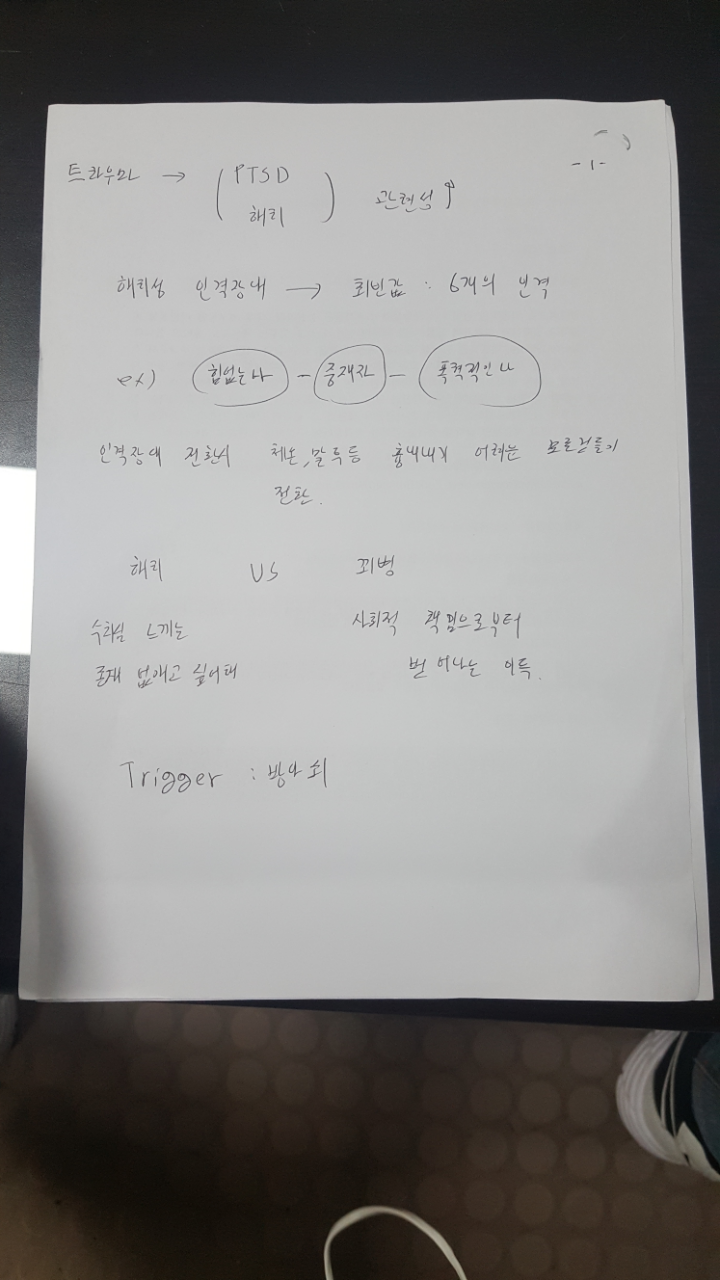 -1-
트라우마 → ( PTSD 해리 ) 관련성 ↑
해리성 인격장애 → 최빈값 : 6개의 인격
ex) 힘없는 나 - 중재자 - 폭력적인 나
인격장애 전환시 체온, 말투등 흉내내기 어려는 모르것들기
전환.
해리 VS 꾀병
수치심 느끼는 사회적 책임으로부터
존재 없애고 싶어해 벗어나는 이득.
Trigger : 방아쇠